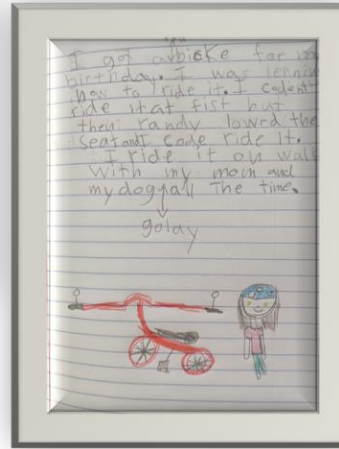 I got a bicke for my
birthday. I was lerning
how to ride it. I codent
ride it at fist but
then randy lowed the
seat and code ride it.
I ride it on walk
with my mom and
my dog all the time.
golay